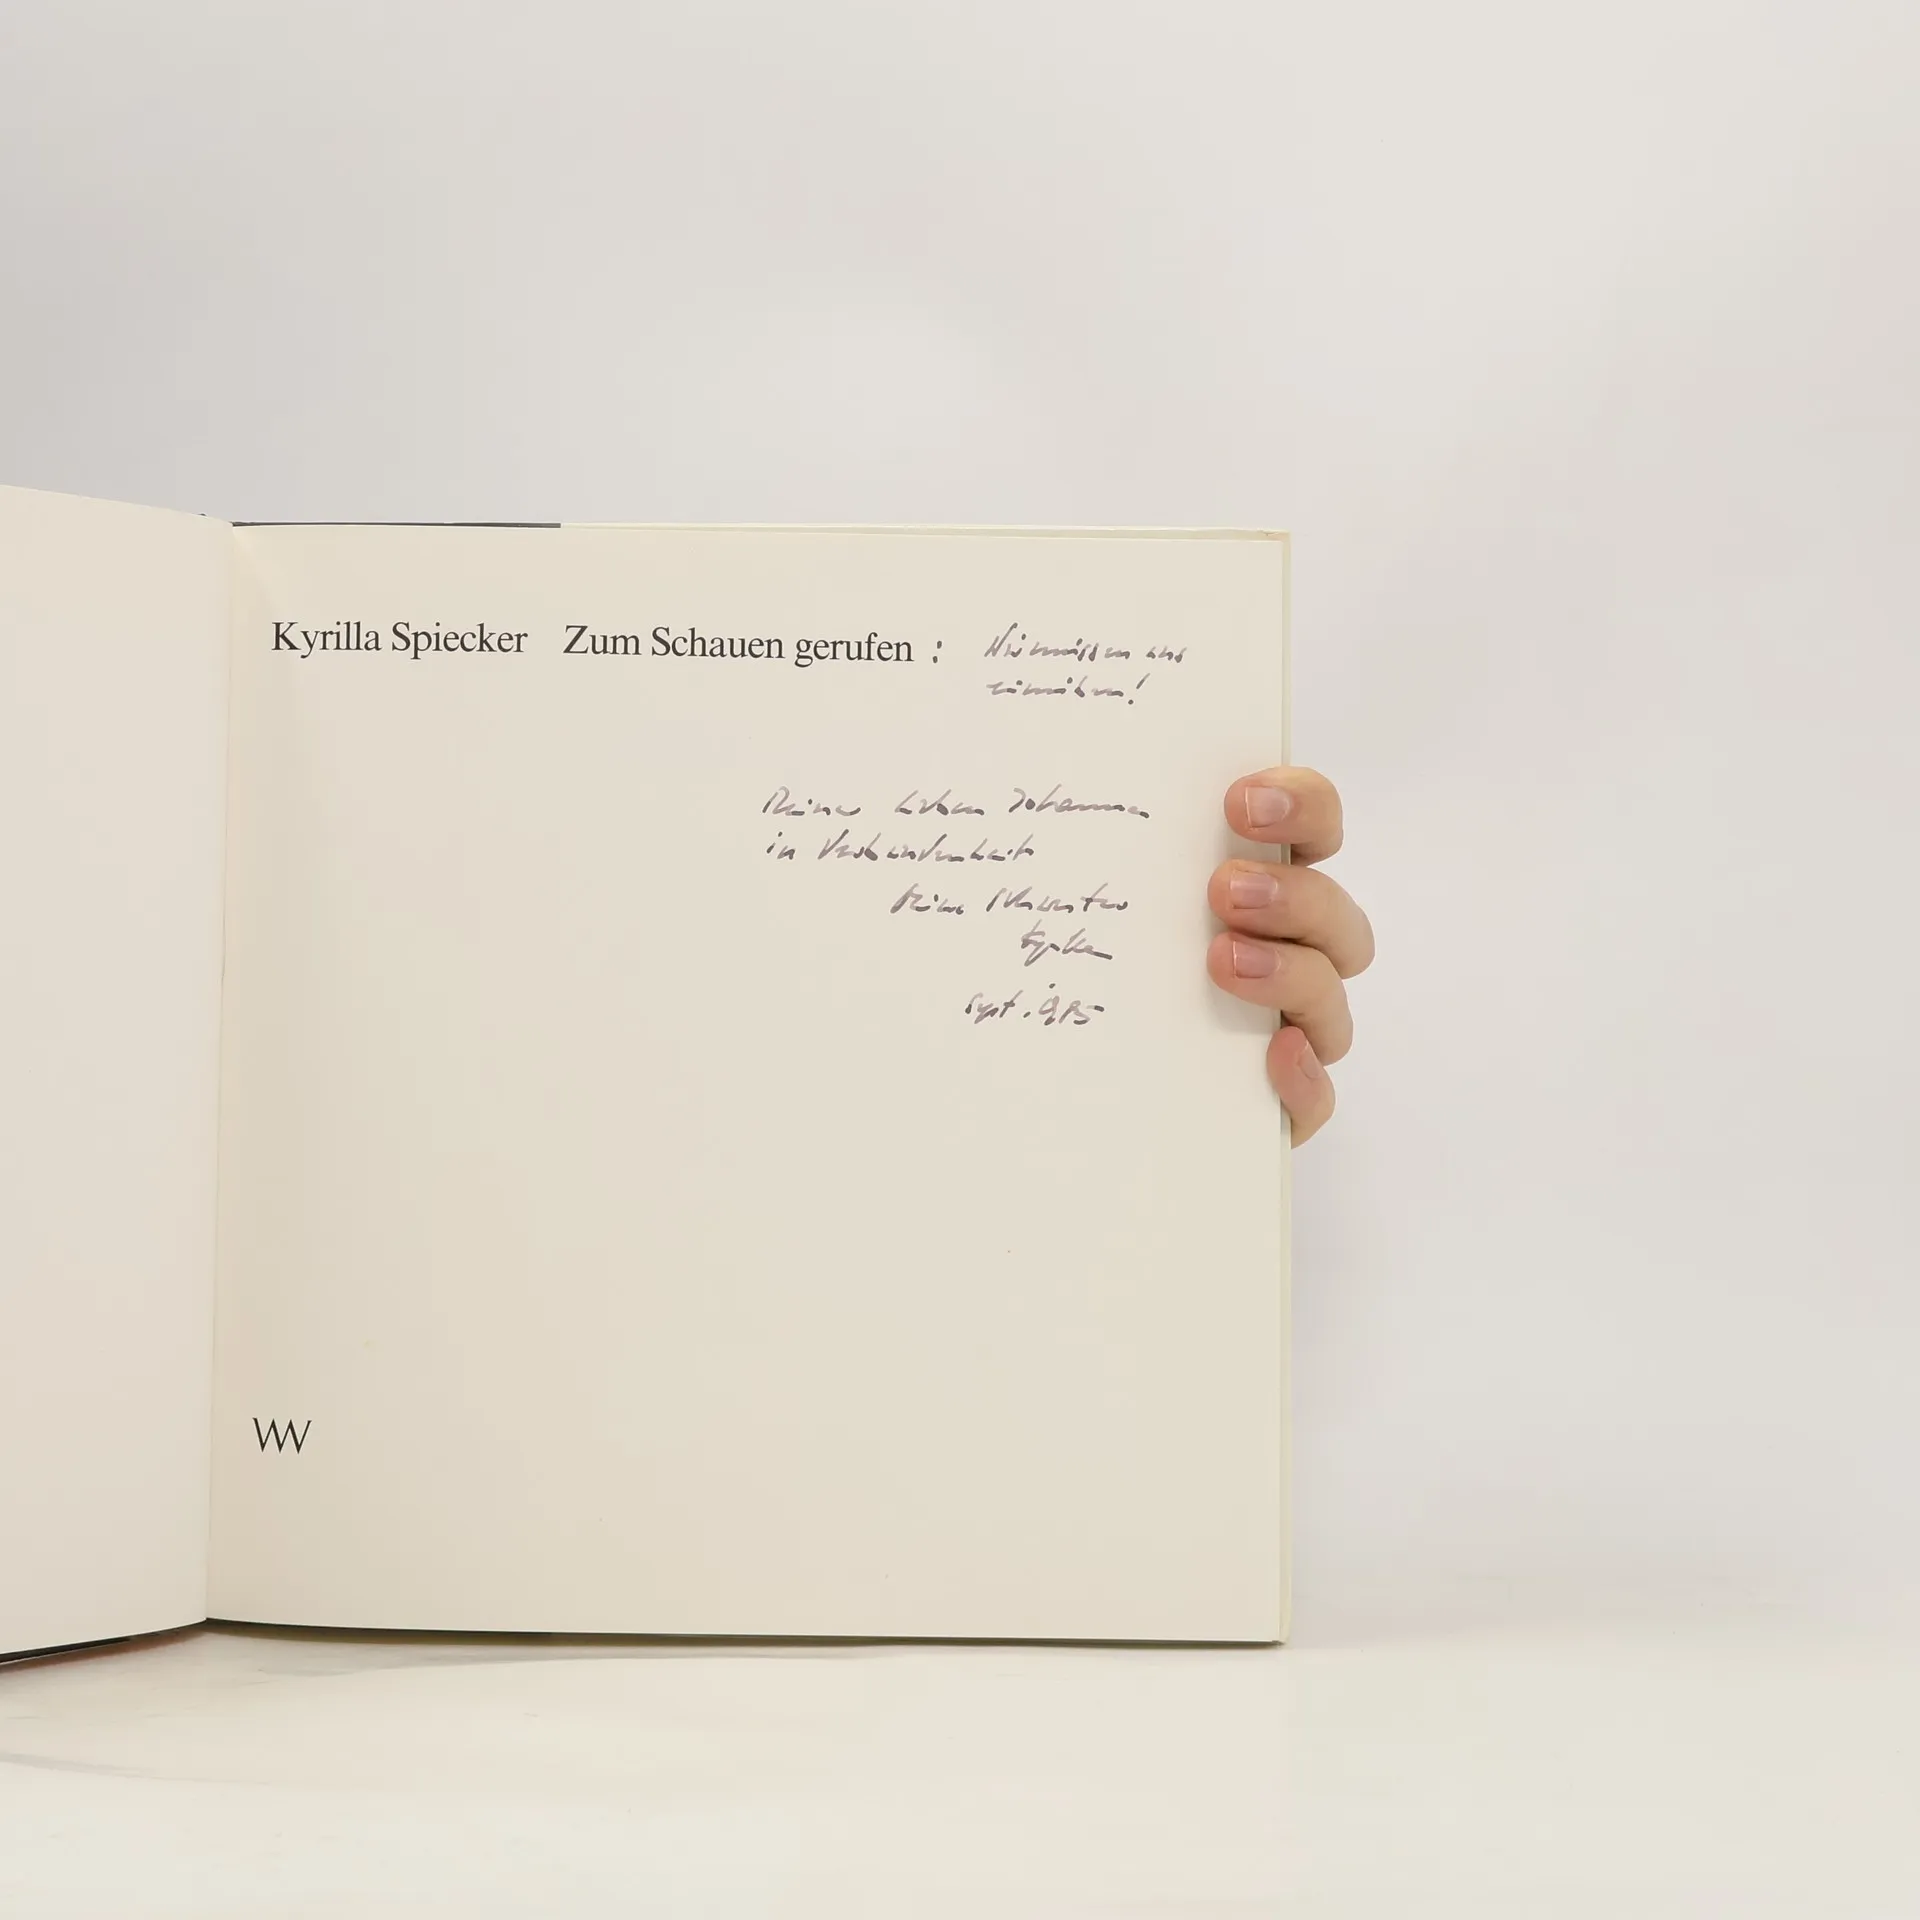 Kyrilla Spiecker Zum Schauen gerufen : Wir müssen uns
einüben!
Meiner lieben Johanna
in Verbundenheit
Deine Schwester
Kyrilla
Sept. 985
VVV